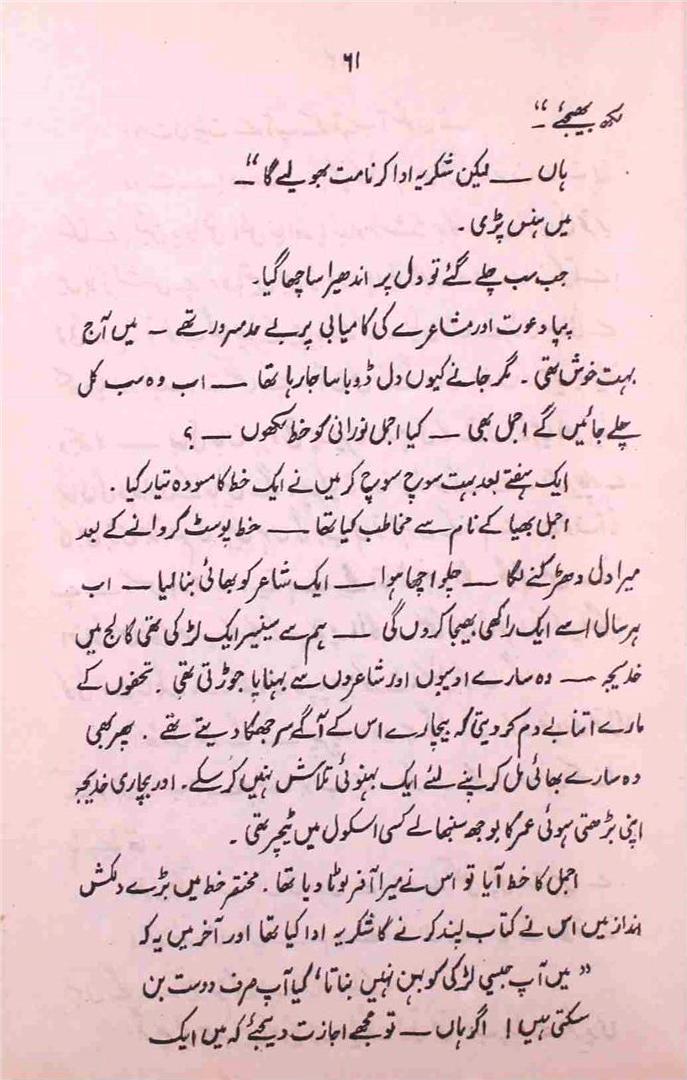 ۶۱
لکھ بھیجئے ۔"
ہاں ــــ لیکن شکریہ ادا کرنا مت بھولیے گا" ــ
میں ہنس پڑی ۔
جب سب چلے گئے تو دل پر اندھیرا سا چھا گیا۔
پپا دعوت اور مشاعرے کی کامیابی پر بے حد مسرور تھے ــ میں آج
بہت خوش تھی ۔ مگر جانے کیوں دل ڈوبا سا جا رہا تھا ــــ اب وہ سب کل
چلے جائیں گے اجمل بھی ــــ کیا اجمل نورانی کو خط لکھوں ــــ ؟
ایک ہفتے بعد بہت سوچ سوچ کر میں نے ایک خط کا مسودہ تیار کیا ۔
اجمل بھیا کے نام سے مخاطب کیا تھا ــــ خط پوسٹ کروانے کے بعد
میرا دل دھڑکنے لگا ــــ چلو اچھا ہوا ــــ ایک شاعر کو بھائی بنا لیا ــــ اب
ہر سال اسے ایک راکھی بھیجا کروں گی ــــ ہم سے سینیر ایک لڑکی تھی کالج میں
خدیجہ ــــ وہ سارے ادیبوں اور شاعروں سے بہناپا جوڑتی تھی ۔ تحفوں کے
مارے اتنا بے دم کر دیتی کہ بیچارے اس کے آگے سر جھکا دیتے تھے ۔ پھر بھی
وہ سارے بھائی مل کر اپنے لئے ایک بہنوئی تلاش نہیں کر سکے ۔ اور بچاری خدیجہ
اپنی بڑھتی ہوئی عمر کا بوجھ سنبھالے کسی اسکول میں ٹیچر تھی ۔
اجمل کا خط آیا تو اس نے میرا آفر لوٹا دیا تھا ۔ مختصر خط میں بڑے دلکش
انداز میں اس نے کتاب پسند کرنے کا شکریہ ادا کیا تھا اور آخر میں یہ کہ
"میں آپ جیسی لڑکی کو بہن نہیں بناتا، کیا آپ صرف دوست بن
سکتی ہیں! اگر ہاں ــــ تو مجھے اجازت دیجئے کہ میں ایک